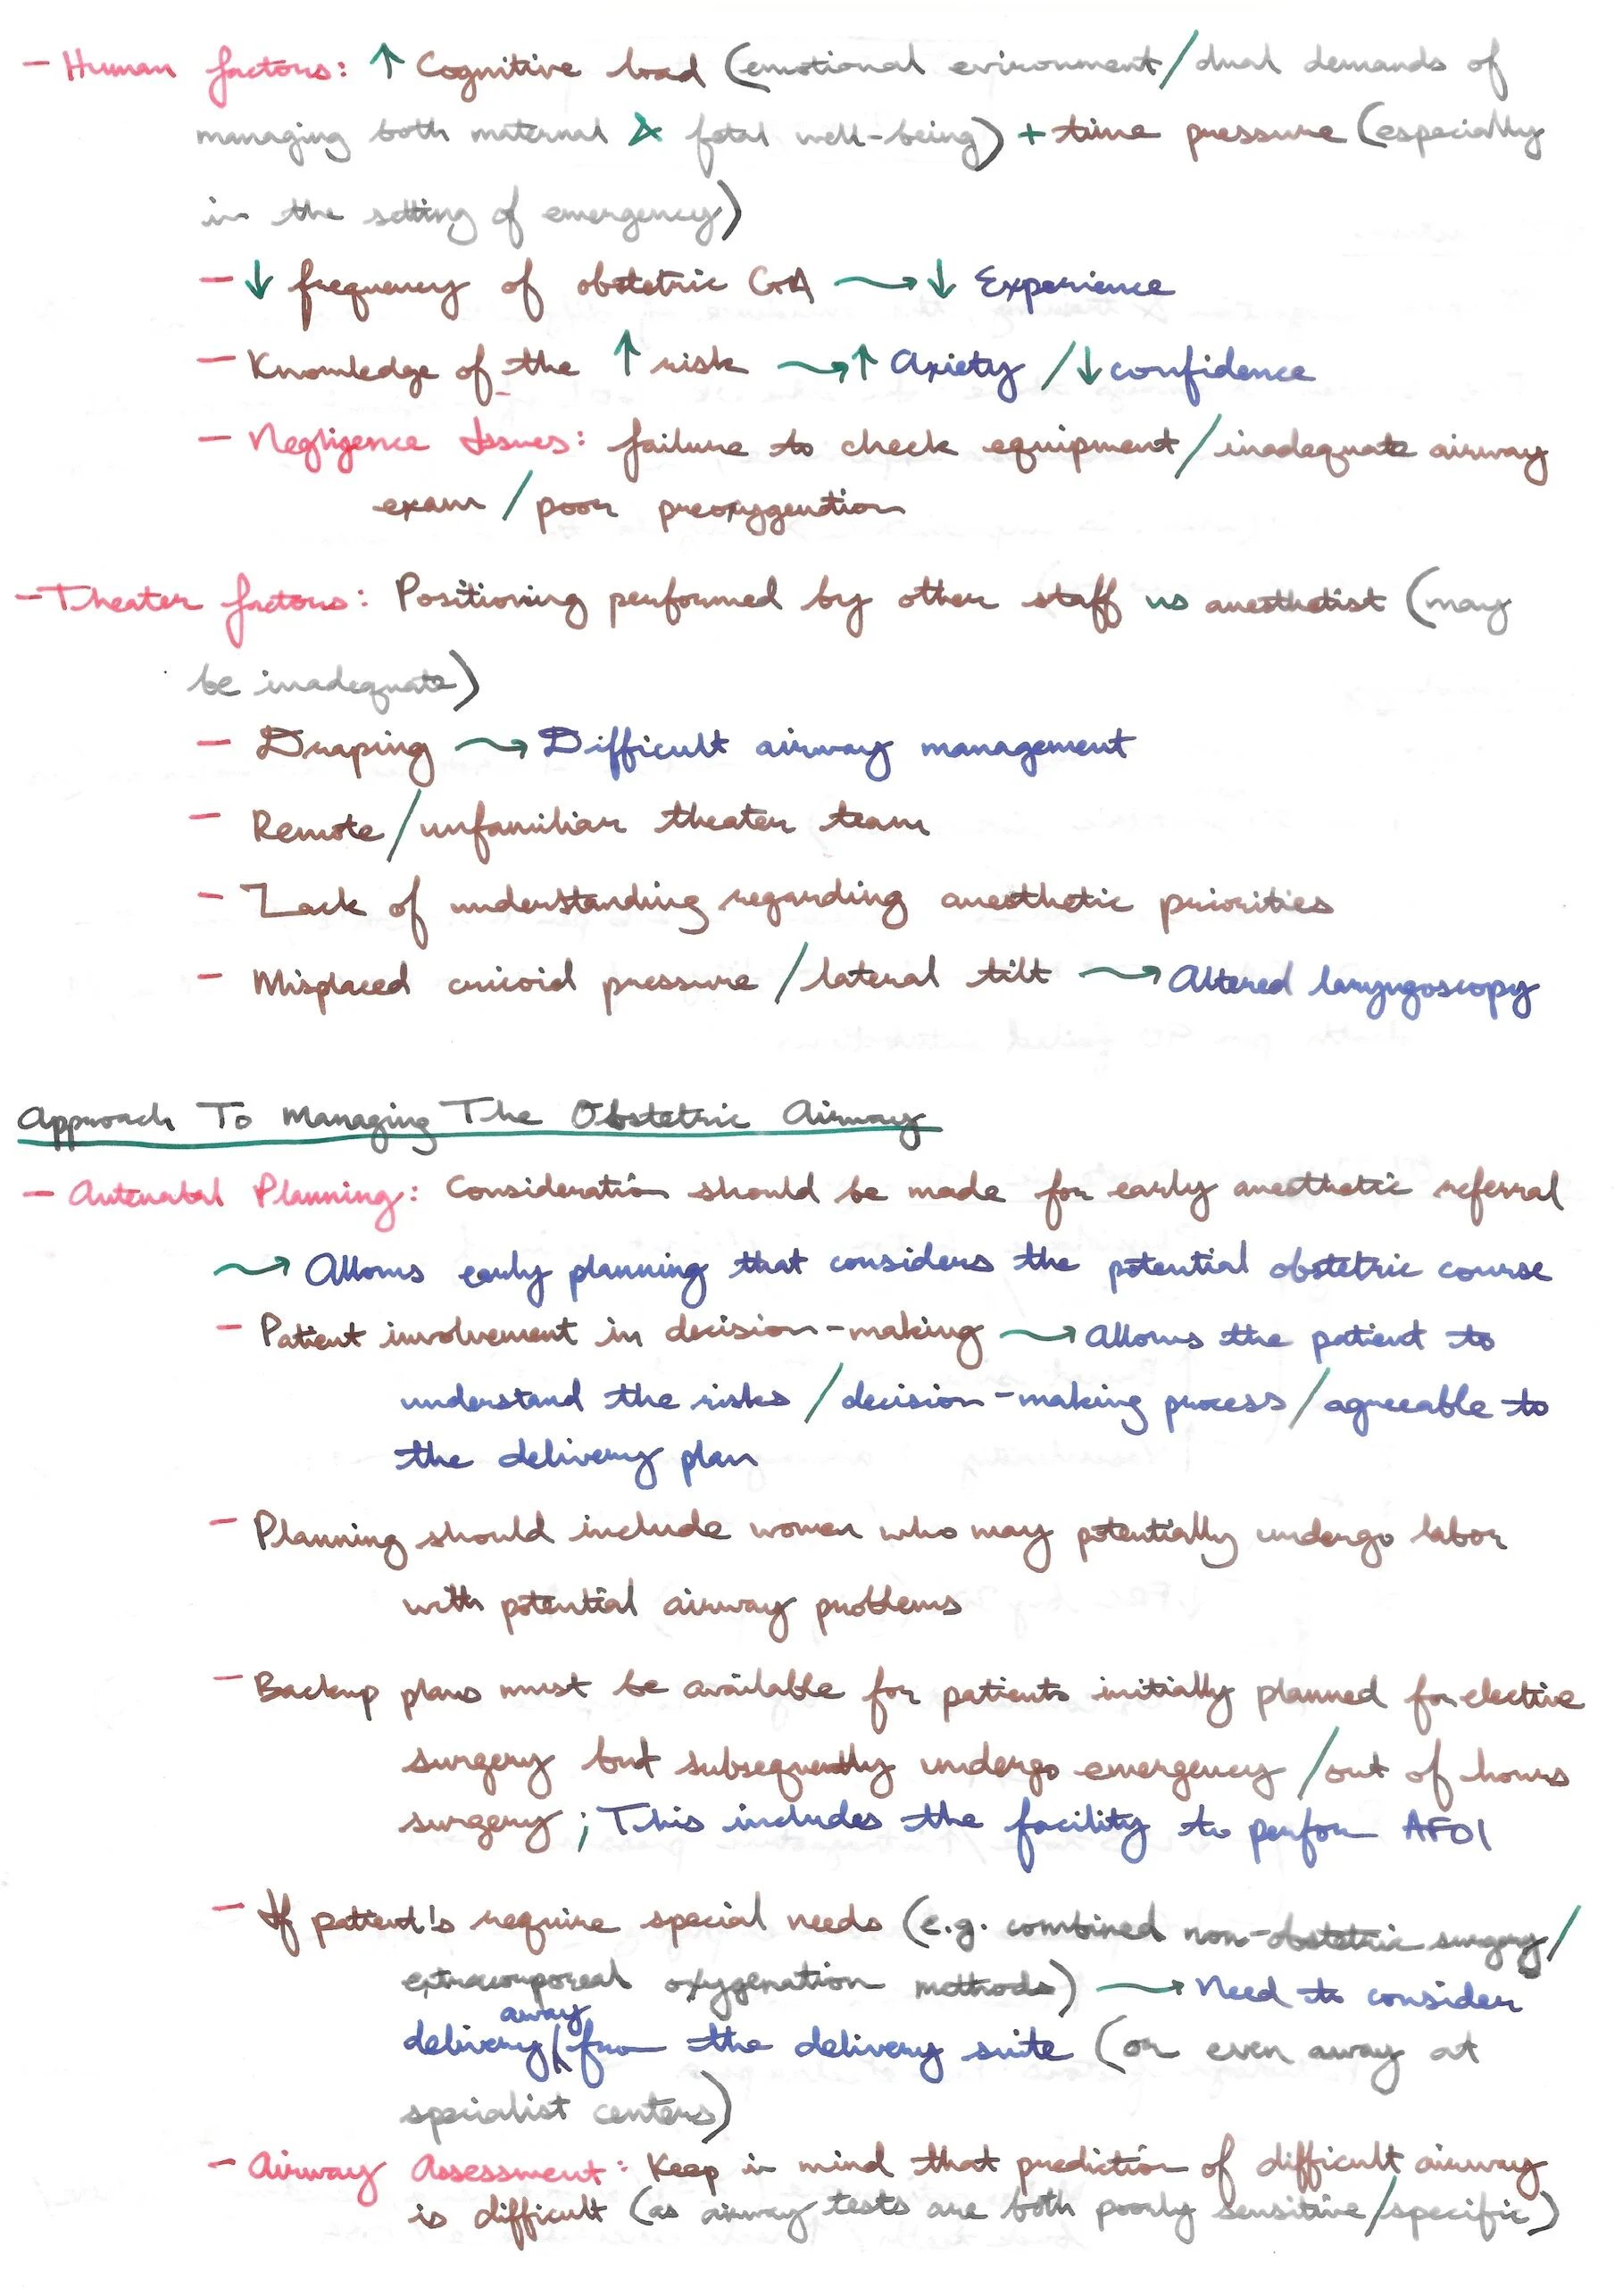 - Human factors: ↑ Cognitive load (emotional evironment/dual demands of
managing both maternal & fetal well-being) + time pressure (especially
in the setting of emergency)
- ↓ frequency of obstetric GA → ↓ Experience
- Knowledge of the ↑ risk → ↑ Axiety / ↓ confidence
- Negligence Issues: failure to check equipment/inadequate airway
exam / poor preoxygenation
- Theater factors: Positioning performed by other staff vs anesthetist (may
be inadequate)
- Draping → Difficult airway management
- Remote/unfamiliar theater team
- Lack of understanding regarding anesthetic priorities
- Misplaced cricoid pressure / lateral tilt → Altered laryngoscopy
Approach To Managing The Obstetric Airway
- Antenatal Planning: Consideration should be made for early anesthetic referral
→ Allows early planning that considers the potential obstetric course
- Patient involvement in decision-making → Allows the patient to
understand the risks / decision-making process / agreeable to
the delivery plan
- Planning should include women who may potentially undergo labor
with potential airway problems
- Backup plans must be available for patients initially planned for elective
surgery but subsequently undergo emergency / out of hours
surgery ; This includes the facility to perfom AFOI
- If patient's require special needs (e.g. combined non-obstetric surgery/
extracorporeal oxygenation methods) → Need to consider
delivery away from the delivery suite (or even away at
specialist centers)
- Airway Assessment: Keep in mind that prediction of difficult airway
is difficult (as airway tests are both poorly sensitive/specific)